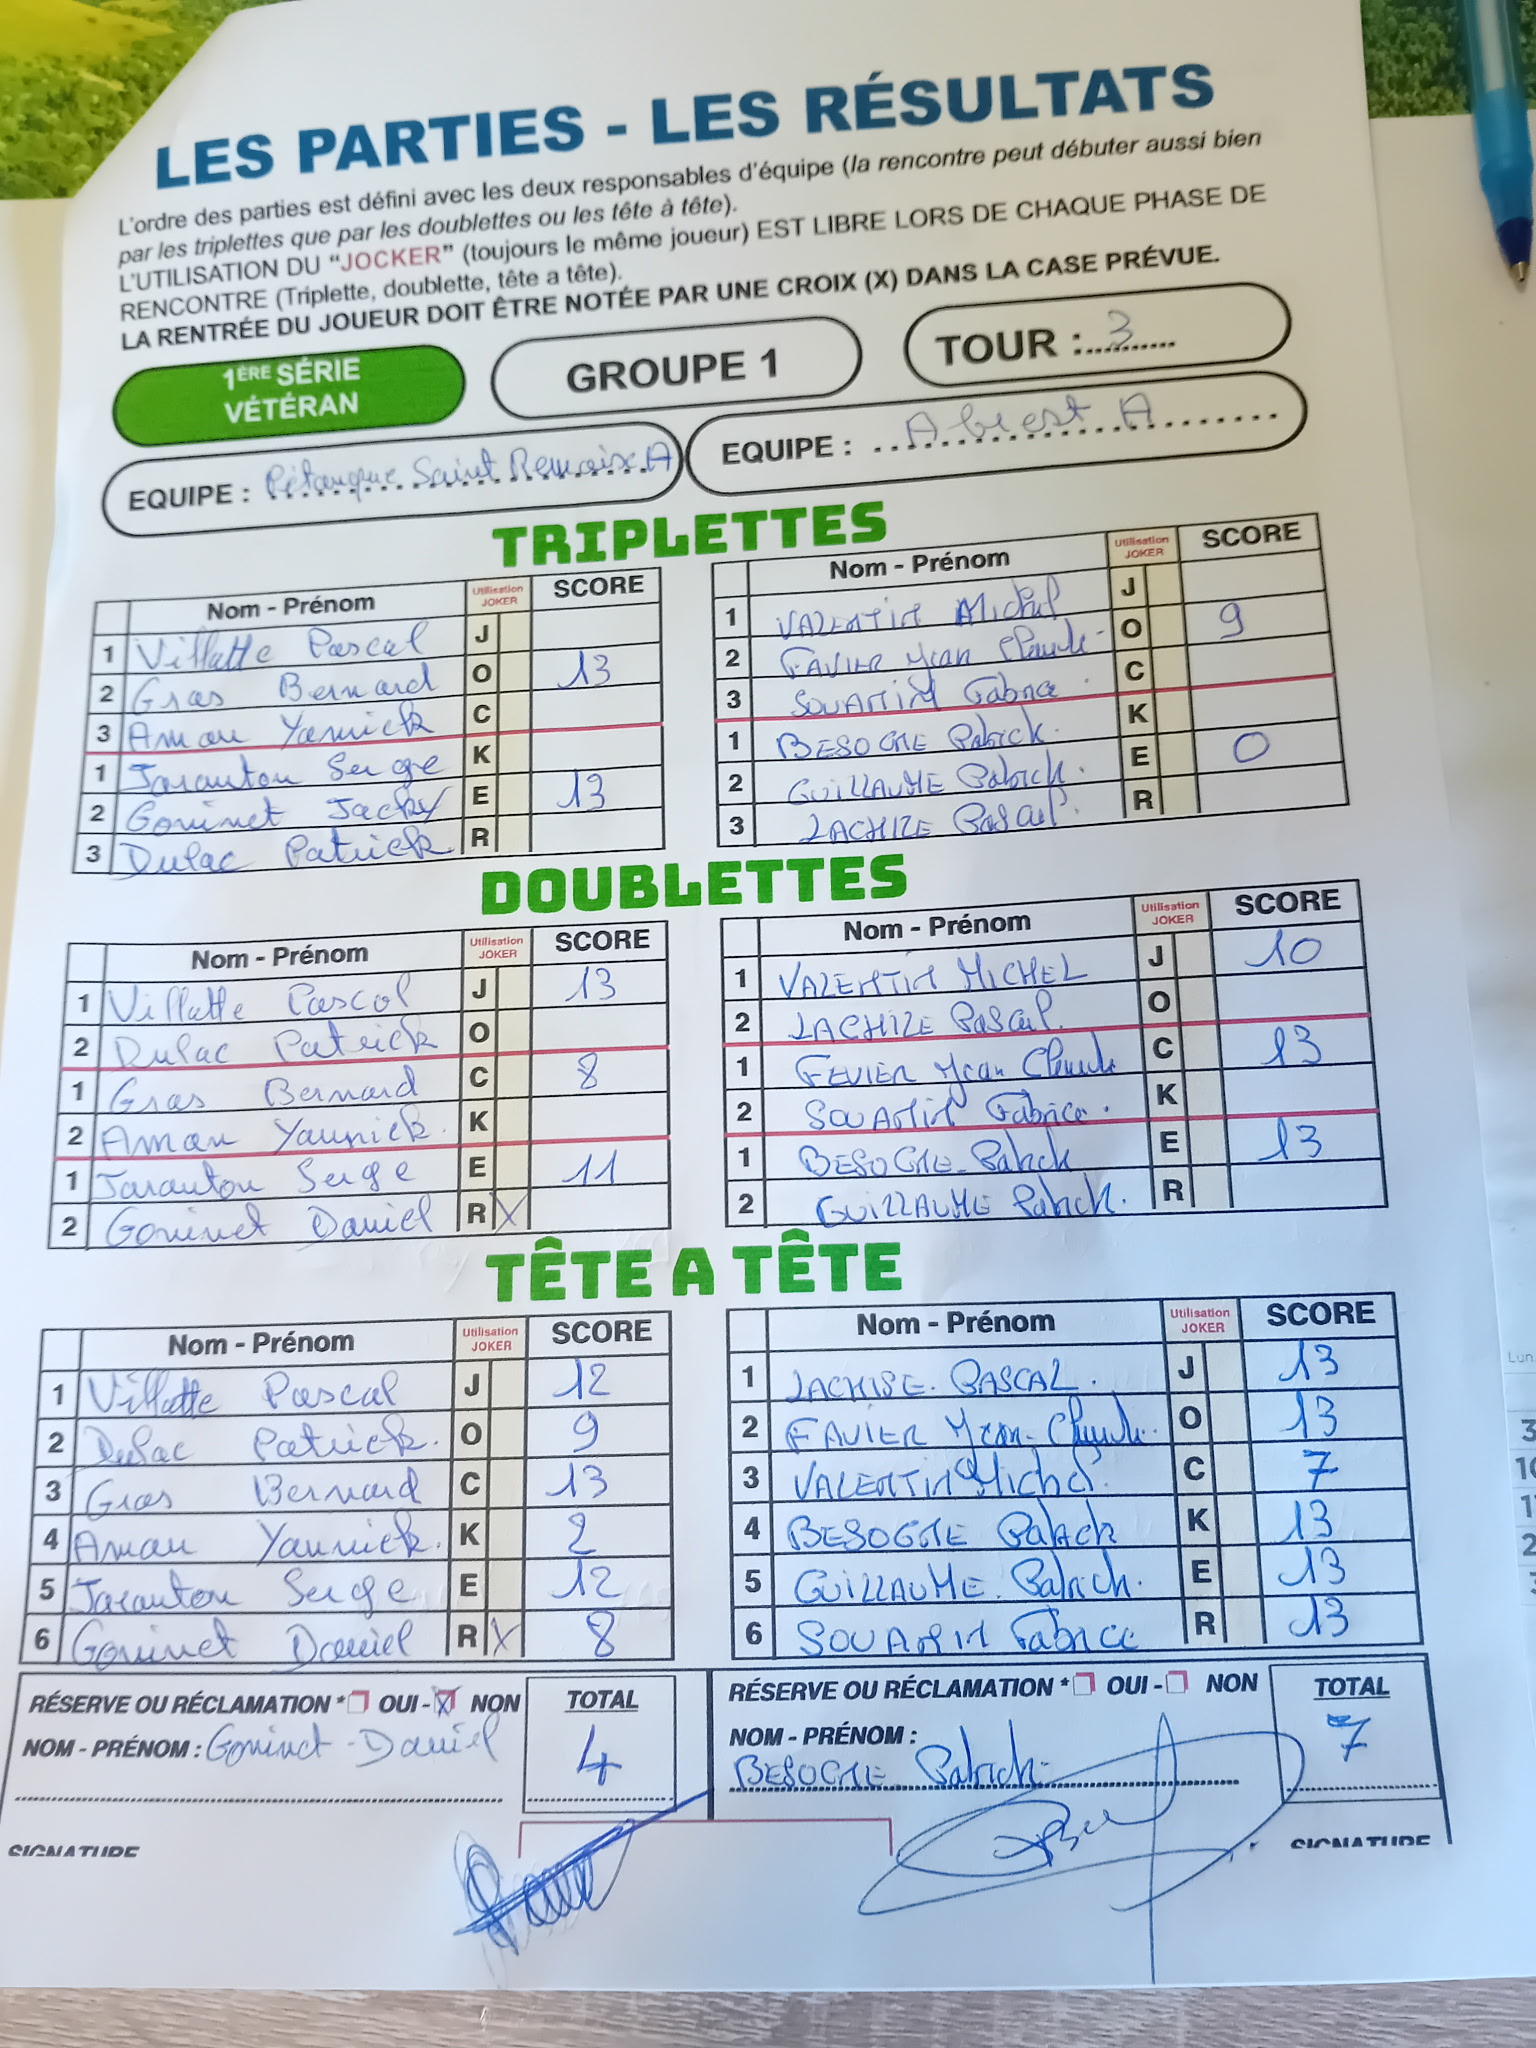 LES PARTIES - LES RÉSULTATS
L'ordre des parties est défini avec les deux responsables d'équipe (la rencontre peut débuter aussi bien
par les triplettes que par les doublettes ou les tête à tête).
L'UTILISATION DU "JOCKER" (toujours le même joueur) EST LIBRE LORS DE CHAQUE PHASE DE
RENCONTRE (Triplette, doublette, tête a tête).
LA RENTRÉE DU JOUEUR DOIT ÊTRE NOTÉE PAR UNE CROIX (X) DANS LA CASE PRÉVUE.
1ÈRE SÉRIE
VÉTÉRAN
GROUPE 1
TOUR : 3
EQUIPE : Pétanque Saint Remoise A
EQUIPE : Abiest A
TRIPLETTES
Nom - Prénom Utilisation JOKER SCORE
1 Villatte Pascal J
2 Gras Bernard O 13
3 Aman Yannick C
1 Taranton Serge K
2 Goninet Jacky E 13
3 Dulac Patrick R
Nom - Prénom Utilisation JOKER SCORE
1 VALENTIN Michel J
2 FAVIER Jean Claude O 9
3 Fabrice C
1 BESOGNE Patrick K
2 GUILLAUME Patrick E 0
3 LACHIZE Pascal R
DOUBLETTES
Nom - Prénom Utilisation JOKER SCORE
1 Villatte Pascal J 13
2 Dulac Patrick O
1 Gras Bernard C 8
2 Aman Yannick K
1 Taranton Serge E 11
2 Goninet Daniel R X
Nom - Prénom Utilisation JOKER SCORE
1 VALENTIN MICHEL J 10
2 LACHIZE Pascal O
1 FEVIER Jean Claude C 13
2 Fabrice K
1 BESOGNE Patrick E 13
2 GUILLAUME Patrick R
TÊTE A TÊTE
Nom - Prénom Utilisation JOKER SCORE
1 Villatte Pascal J 12
2 Dulac Patrick O 9
3 Gras Bernard C 13
4 Aman Yannick K 2
5 Taranton Serge E 12
6 Goninet Daniel R X 8
Nom - Prénom Utilisation JOKER SCORE
1 LACHISE PASCAL J 13
2 FAVIER Jean Claude O 13
3 VALENTIN Michel C 7
4 BESOGNE Patrick K 13
5 GUILLAUME Patrick E 13
6 Fabrice R 13
RÉSERVE OU RÉCLAMATION * OUI - X NON
NOM - PRÉNOM : Goninet Daniel
TOTAL
4
SIGNATURE
RÉSERVE OU RÉCLAMATION * OUI - NON
NOM - PRÉNOM :
BESOGNE Patrick
TOTAL
7
SIGNATURE
Lun